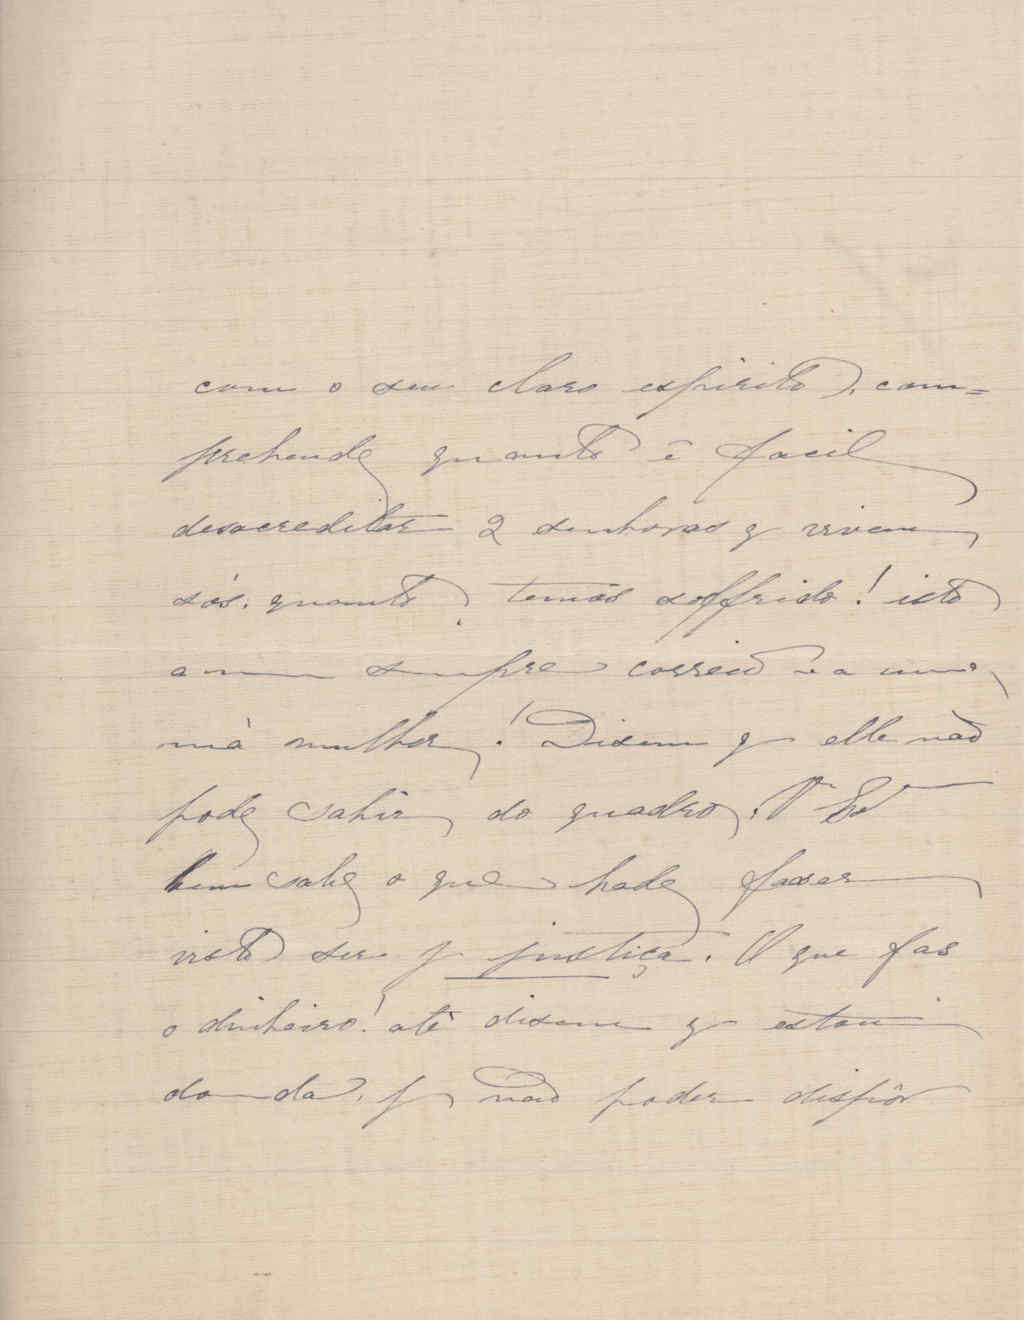 com o seu claro espirito, com=
prehende quanto é facil
desacreditar 2 senhoras q vivem
sós. quanto temos soffrido! isto
a um sempre correio é a uma
má mulher! Disem q elle não
pode sahir do quadro. V Exª
bem sabe o que hade faser
visto ser p justiça. O que fas
o dinheiro! até disem q estou
doida, p não poder dispôr